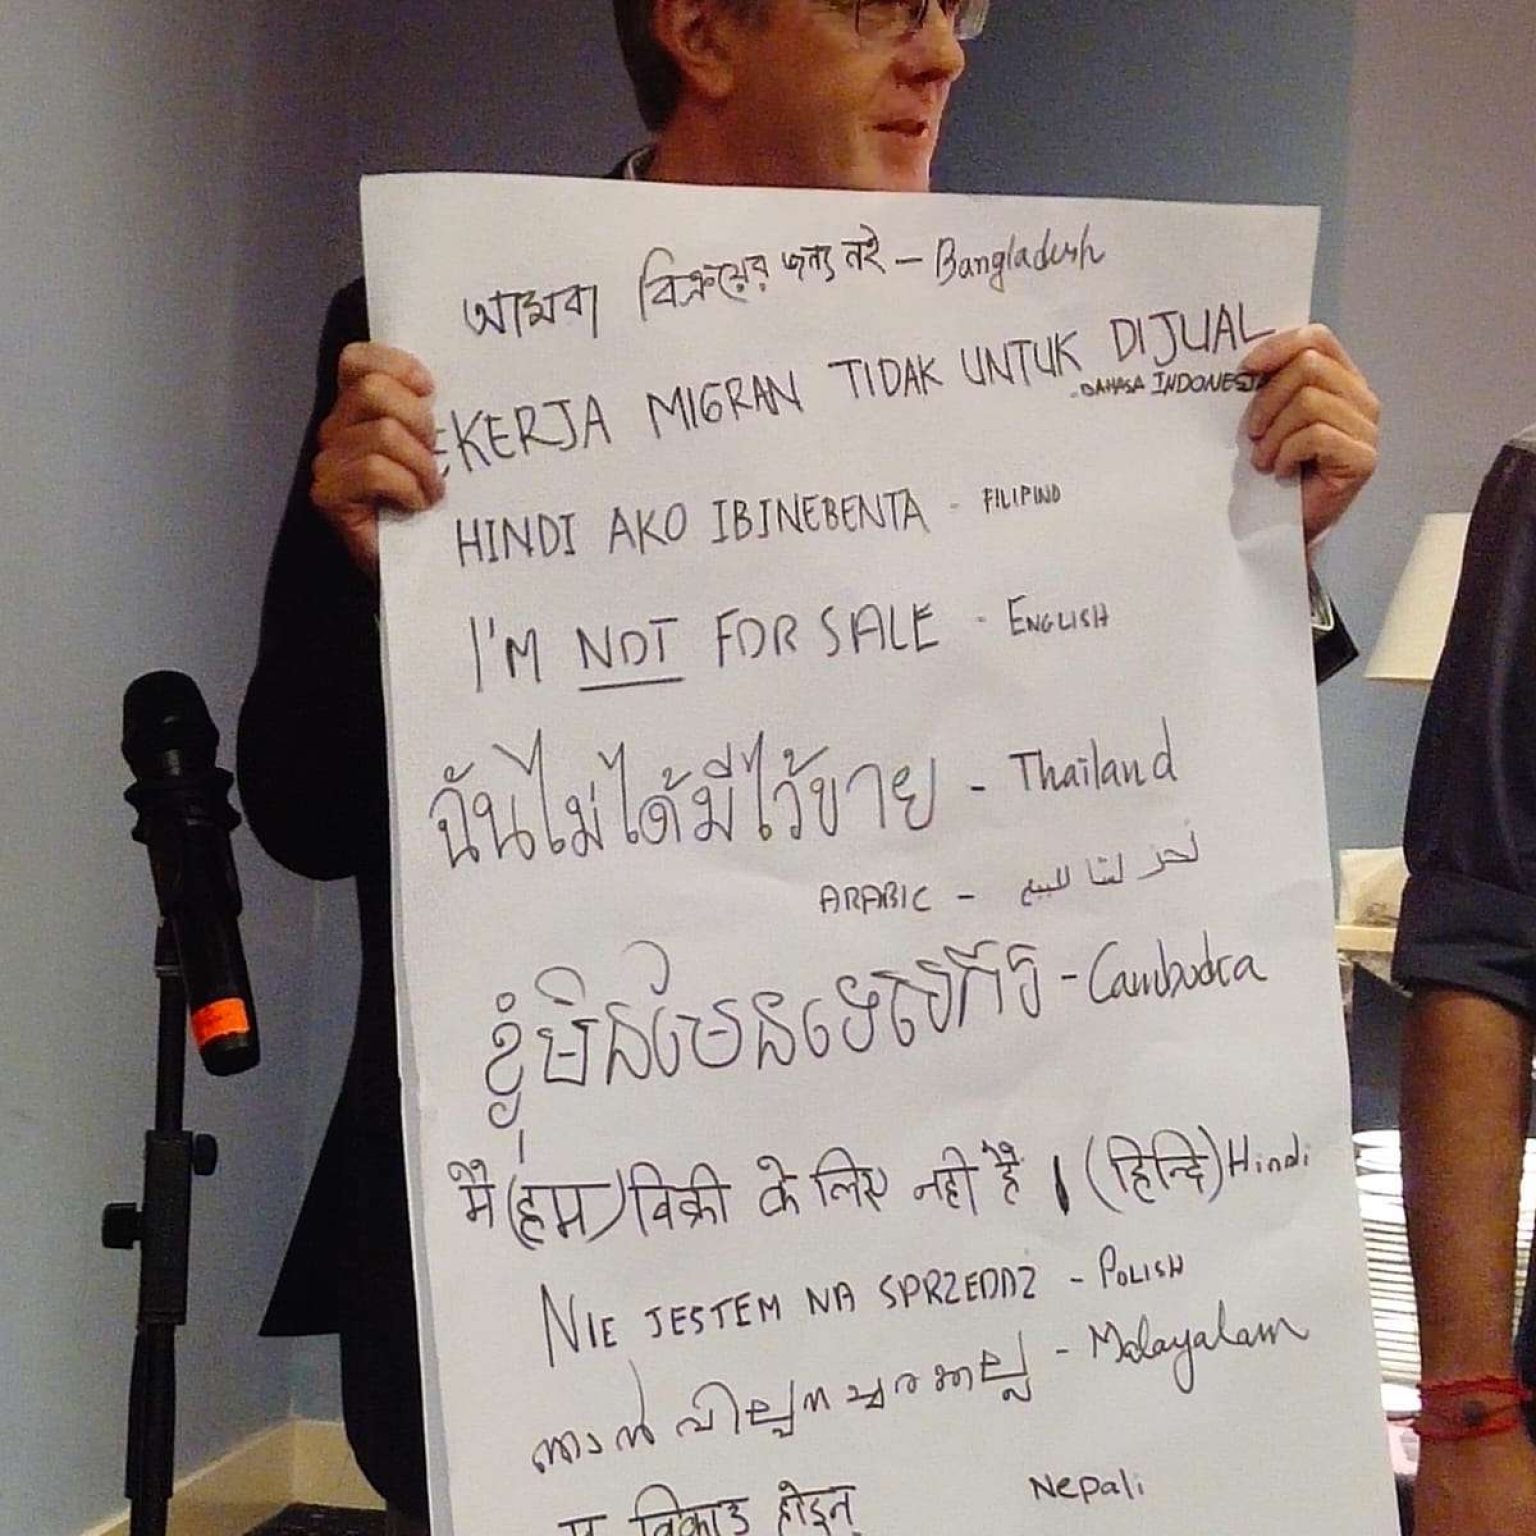 আমরা বিক্রয়ের জন্য নই - Bangladesh
EKERJA MIGRAN TIDAK UNTUK DIJUAL
- BAHASA INDONESIA
HINDI AKO IBINEBENTA - FILIPINO
I'M NOT FOR SALE - ENGLISH
ฉันไม่ได้มีไว้ขาย - Thailand
ARABIC - نحن لسنا للبيع
ខ្ញុំមិនមែន - Cambodia
मै (हम) बिक्री के लिए नही है । (हिन्दि) Hindi
NIE JESTEM NA SPRZEDAŻ - POLISH
- Malayalam
म बिकाउ होइन् Nepali